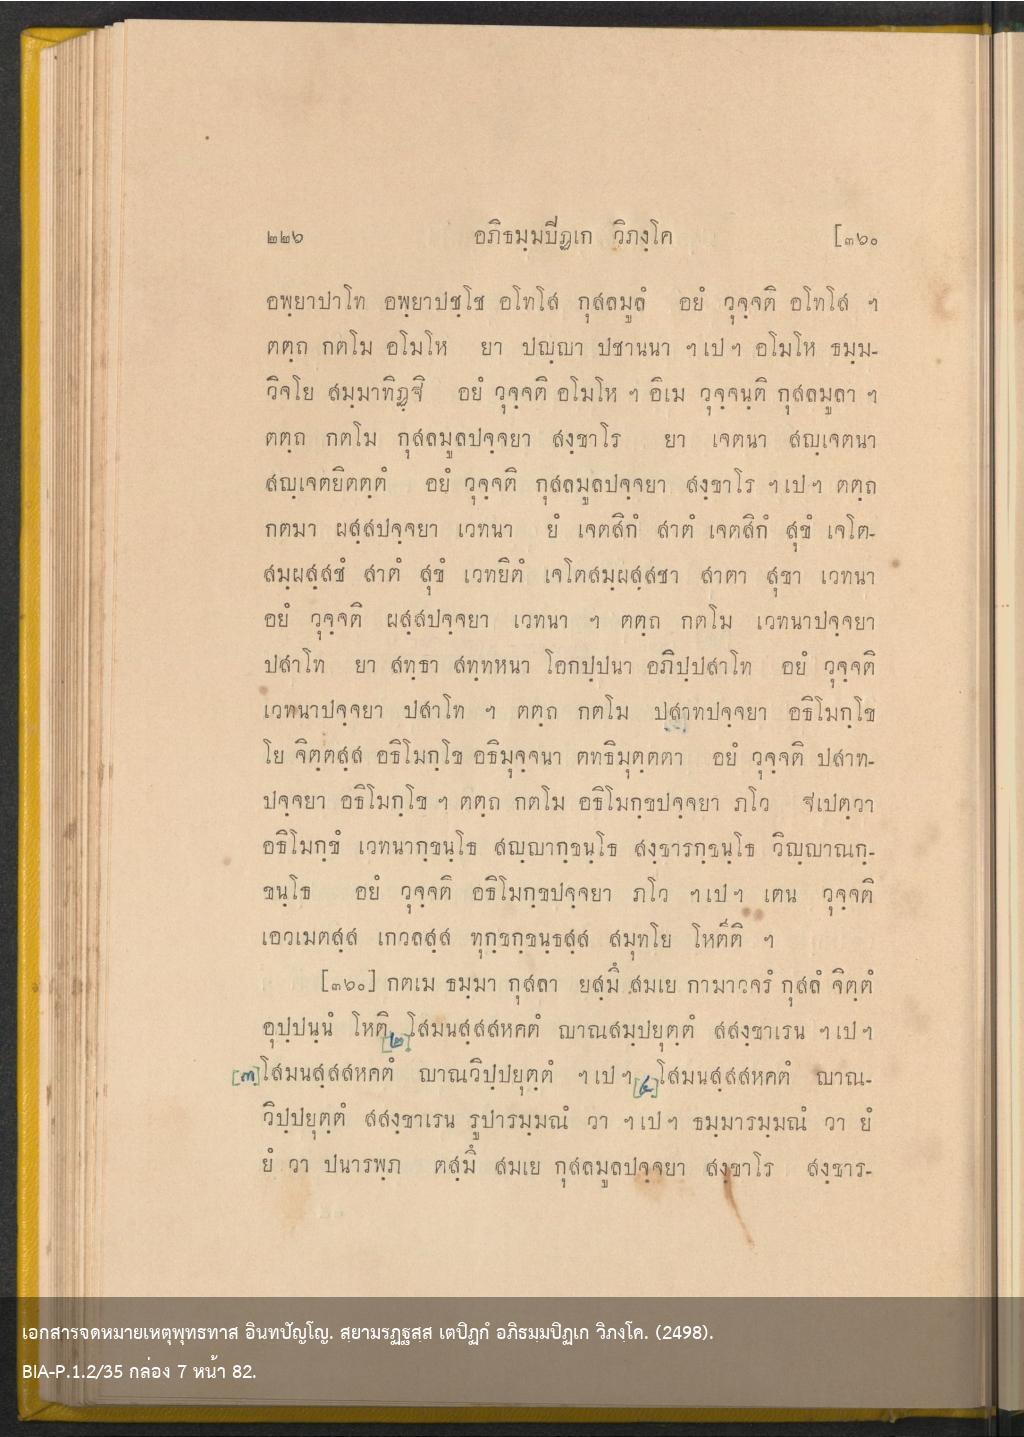 ๒๒๖ อภิธมฺมปิฏเก วิภงฺโค [๓๖๐
อพฺยาปาโท อพฺยาปชฺโช อโทโส กุสลมูลํ อยํ วุจฺจติ อโทโส ฯ
ตตฺถ กตโม อโมโห ยา ปญฺญา ปชานนา ฯ เป ฯ อโมโห ธมฺม-
วิจโย สมฺมาทิฏฺฐิ อยํ วุจฺจติ อโมโห ฯ อิเม วุจฺจนฺติ กุสลมูลา ฯ
ตตฺถ กตโม กุสลมูลปจฺจยา สงฺขาโร ยา เจตนา สญฺเจตนา
สญฺเจตยิตตฺตํ อยํ วุจฺจติ กุสลมูลปจฺจยา สงฺขาโร ฯ เป ฯ ตตฺถ
กตมา ผสฺสปจฺจยา เวทนา ยํ เจตสิกํ สาตํ เจตสิกํ สุขํ เจโต-
สมฺผสฺสชํ สาตํ สุขํ เวทยิตํ เจโตสมฺผสฺสชา สาตา สุขา เวทนา
อยํ วุจฺจติ ผสฺสปจฺจยา เวทนา ฯ ตตฺถ กตโม เวทนาปจฺจยา
ปสาโท ยา สทฺธา สทฺทหนา โอกปฺปนา อภิปฺปสาโท อยํ วุจฺจติ
เวทนาปจฺจยา ปสาโท ฯ ตตฺถ กตโม ปสาทปจฺจยา อธิโมกฺโข
โย จิตฺตสฺส อธิโมกฺโข อธิมุจฺจนา ตทธิมุตฺตตา อยํ วุจฺจติ ปสาท-
ปจฺจยา อธิโมกฺโข ฯ ตตฺถ กตโม อธิโมกฺขปจฺจยา ภโว ฐเปตฺวา
อธิโมกฺขํ เวทนากฺขนฺโธ สญฺญากฺขนฺโธ สงฺขารกฺขนฺโธ วิญฺญาณกฺ-
ขนฺโธ อยํ วุจฺจติ อธิโมกฺขปจฺจยา ภโว ฯ เป ฯ เตน วุจฺจติ
เอวเมตสฺส เกวลสฺส ทุกฺขกฺขนฺธสฺส สมุทโย โหตีติ ฯ
[๓๖๐] กตเม ธมฺมา กุสลา ยสฺมึ สมเย กามาวจรํ กุสลํ จิตฺตํ
อุปฺปนฺนํ โหติ [๒] โสมนสฺสสหคตํ ญาณสมฺปยุตฺตํ สสงฺขาเรน ฯ เป ฯ
[๓] โสมนสฺสสหคตํ ญาณวิปฺปยุตฺตํ ฯ เป ฯ [๔] โสมนสฺสสหคตํ ญาณ-
วิปฺปยุตฺตํ สสงฺขาเรน รูปารมฺมณํ วา ฯ เป ฯ ธมฺมารมฺมณํ วา ยํ
ยํ วา ปนารพฺภ ตสฺมึ สมเย กุสลมูลปจฺจยา สงฺขาโร สงฺขาร-
เอกสารจดหมายเหตุพุทธทาส อินทปัญโญ. สฺยามรฏฺฐสฺส เตปิฏกํ อภิธมฺมปิฏเก วิภงฺโค. (2498).
BIA-P.1.2/35 กล่อง 7 หน้า 82.